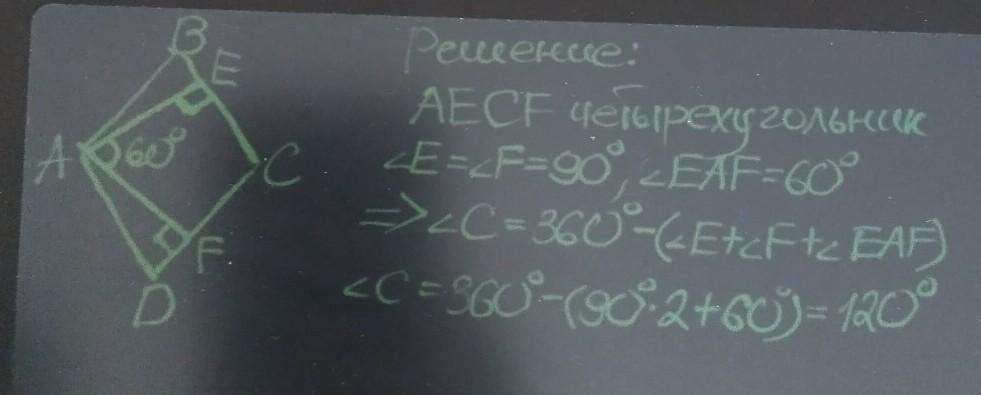 B
E
A 60° C
F
D
Решение:
AECF четырехугольник
∠E=∠F=90°, ∠EAF=60°
=>∠C=360°-(∠E+∠F+∠EAF)
∠C=360°-(90°·2+60°)=120°